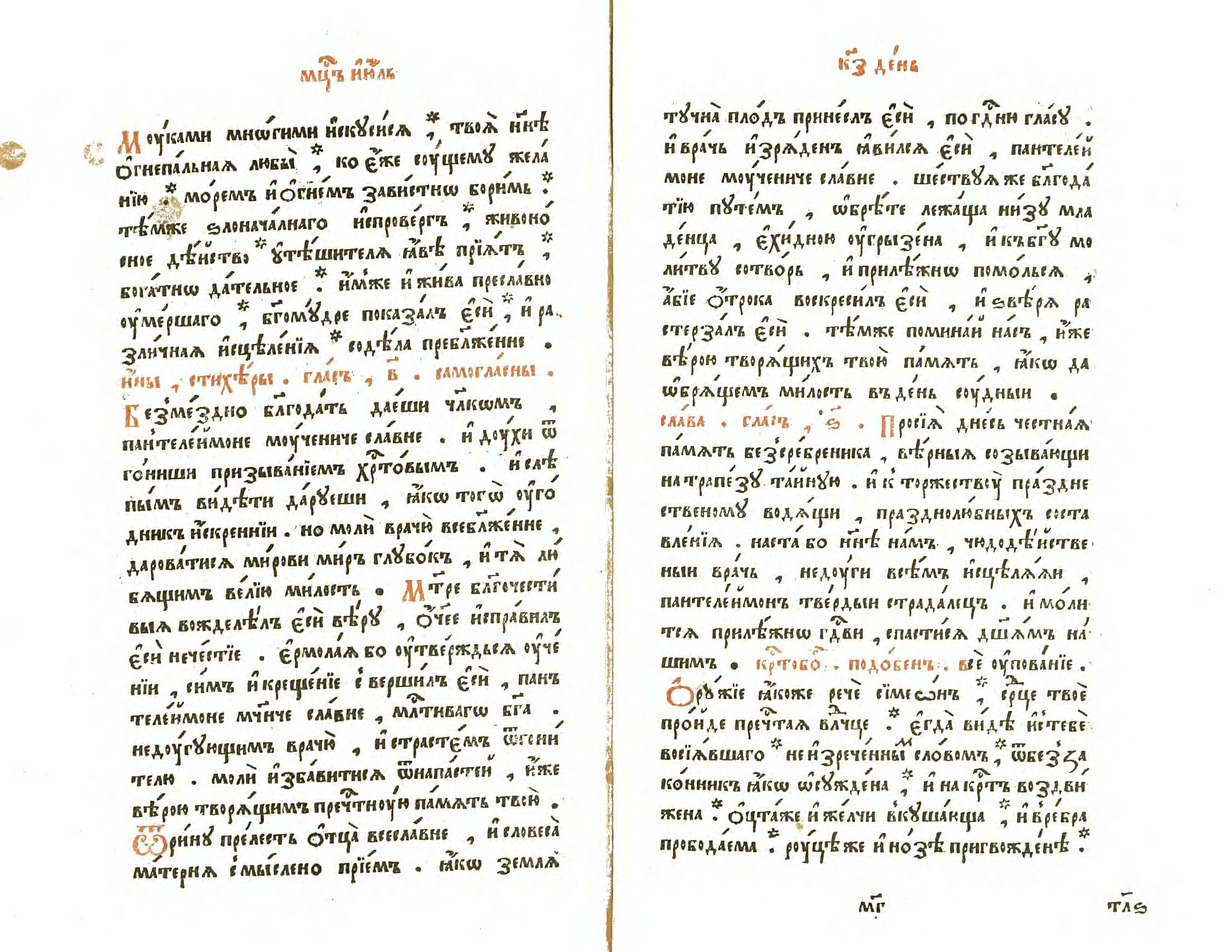 мц҇ъ и҆ю҆́ль
Моу́ками мно́гими и҆скуси́сѧ ⁎҆ твоѧ̀ ны́нѣ
О҆гнепа́льнаѧ любы̀ ⁎҆ ко є҆́же соу́щему жела́
нїю ⁎ мо́ремъ и҆ О҆гне́мъ зави́стнѡ бори́мь ⁎
тѣ́мже ѕлонача́лнаго и҆спрове́ргъ ⁎҆ живоно́
сное дѣ́йство ⁎ ᲂутѣ́шителѧ ꙗ҆́вѣ прїѧ́тъ ⁎҆
бога́тнѡ да́тельное ⁎ и҆́мже и҆ жи́ва пресла́вно
оу҆ме́ршаго ⁎҆ бг҃ому́дре показа́лъ є҆сѝ ⁎҆ и҆ ра
зли́чнаѧ и҆сцѣле́нїѧ ⁎ содѣ́ла пребл҃же́нне .
и҆́ны , стихѣ́ры . гла́съ , в҃ . самогла́сны .
Безме́здно бл҃года́ть дае́ши чл҃кѡмъ ,
пантелеи́моне моу́чениче сла́вне . и҆ доу́хи ѿ
го́ниши призыва́нїемъ хрⷭ҇то́вымъ . и҆ слѣ
пы́мъ ви́дѣти да́руеши , ꙗ҆́кѡ тогѡ̀ оу҆го́
дникъ и҆́скреннїи . но молѝ врачю̀ всебл҃же́нне ,
дарова́тисѧ ми́рови ми́ръ глубо́къ , и҆ тѧ̀ лю́
бѧщимъ ве́лїю ми́лость . Мт҃ре бл҃гочести́
выѧ вожделѣ́лъ є҆сѝ вѣ́ру , О҆́чее и҆спра́вилъ
є҆сѝ нече́стїе . є҆рмола́ѧ бо оу҆твержьсѧ оу҆че́
нїи , си́мъ и҆ креще́нїе с҆верши́лъ є҆сѝ , пан
телеи́моне мч҃ниче сла́вне , мл҇тиваго бг҃а .
недоу́гующимъ врачю̀ , и҆ страсте́мъ ѿгони́
телю . молѝ и҆зба́витисѧ ѿнапа́стей , и҆́же
вѣ́рою творѧ́щимъ пречⷭ҇тную па́мѧть твою̀ .
Ѿри́ну пре́лесть О҆тца̀ всесла́вне , и҆ словеса̀
ма́терьнѧ с҆мы́слено прїе́мъ . ꙗ҆́кѡ землѧ̀
к҃з де́нь
тучна̀ пло́дъ прине́слъ є҆сѝ , по гдⷭ҇ню гла́су .
и҆ вра́чь и҆зрѧ́денъ ꙗ҆ви́лсѧ є҆сѝ , пантелей
моне моу́чениче сла́вне . ше́ствуѧ же бл҃года́
тїю путе́мъ , ѡ҆брѣ́те лежа́ща ни́зу мла
де́нца , є҆хи́дною оу҆гры́зена , и҆ къбг҃у мо
ли́тву сотво́рь , и҆ прилѣ́жнѡ помо́льсѧ ,
а҆́бїе О҆́трока воскреси́лъ є҆сѝ , и҆ ѕвѣ́рѧ ра
стерза́лъ є҆сѝ . тѣ́мже помина́й на́съ , и҆́же
вѣ́рою творѧ́щихъ твою̀ па́мѧть , ꙗ҆́кѡ да
ѡ҆брѧ́щемъ ми́лость въ де́нь соу́дныи .
сла́ва . гла́съ , ѕ҃ . Просїѧ̀ дне́сь честна́ѧ
па́мѧть без̾сре́бреника , вѣ́рныѧ созыва́ющи
на трапе́зу та́йную . и҆ к торжествоу̀ пра́здне
ственому водѧ́щи , празднолю́бныхъ соста
вле́нїѧ . наста́ бо ны́нѣ на́мъ , чюдодѣ́йстве
ныи вра́чь , недоу́ги всѣ́мъ и҆сцѣлѧ́ѧи ,
пантелеи́монъ тве́рдыи страда́лецъ . и҆ мо́ли
тсѧ прилѣ́жнѡ гдⷭ҇ви , спасти́сѧ дш҃а́мъ на́
шимъ . крⷭ҇тобо҇ . подо́бенъ . всѐ оу҆пова́нїе .
О҆ру́жїе ꙗ҆́коже речѐ сїмеѡ́нъ ⁎҆ срⷣце твоѐ
про́йде пречⷭ҇таѧ влⷣчце ⁎ є҆гда̀ ви́дѣ и҆с тебѐ
восїѧ́вшаго ⁎ неи҆зрече́нныⷨ сло́вомъ ⁎ ѿ без̾за
ко́нникъ ꙗ҆́кѡ ѡ҆суже́на ⁎҆ и҆ на крⷭ҇тъ воздви́
жена ⁎ О҆́цта же и҆ же́лчи вкуша́юща ⁎҆ и҆ в ребра
прободаема ⁎ роу́цѣ же и҆ но́зѣ пригвожде́нѣ ⁎
мг҃
тл҃ѕ